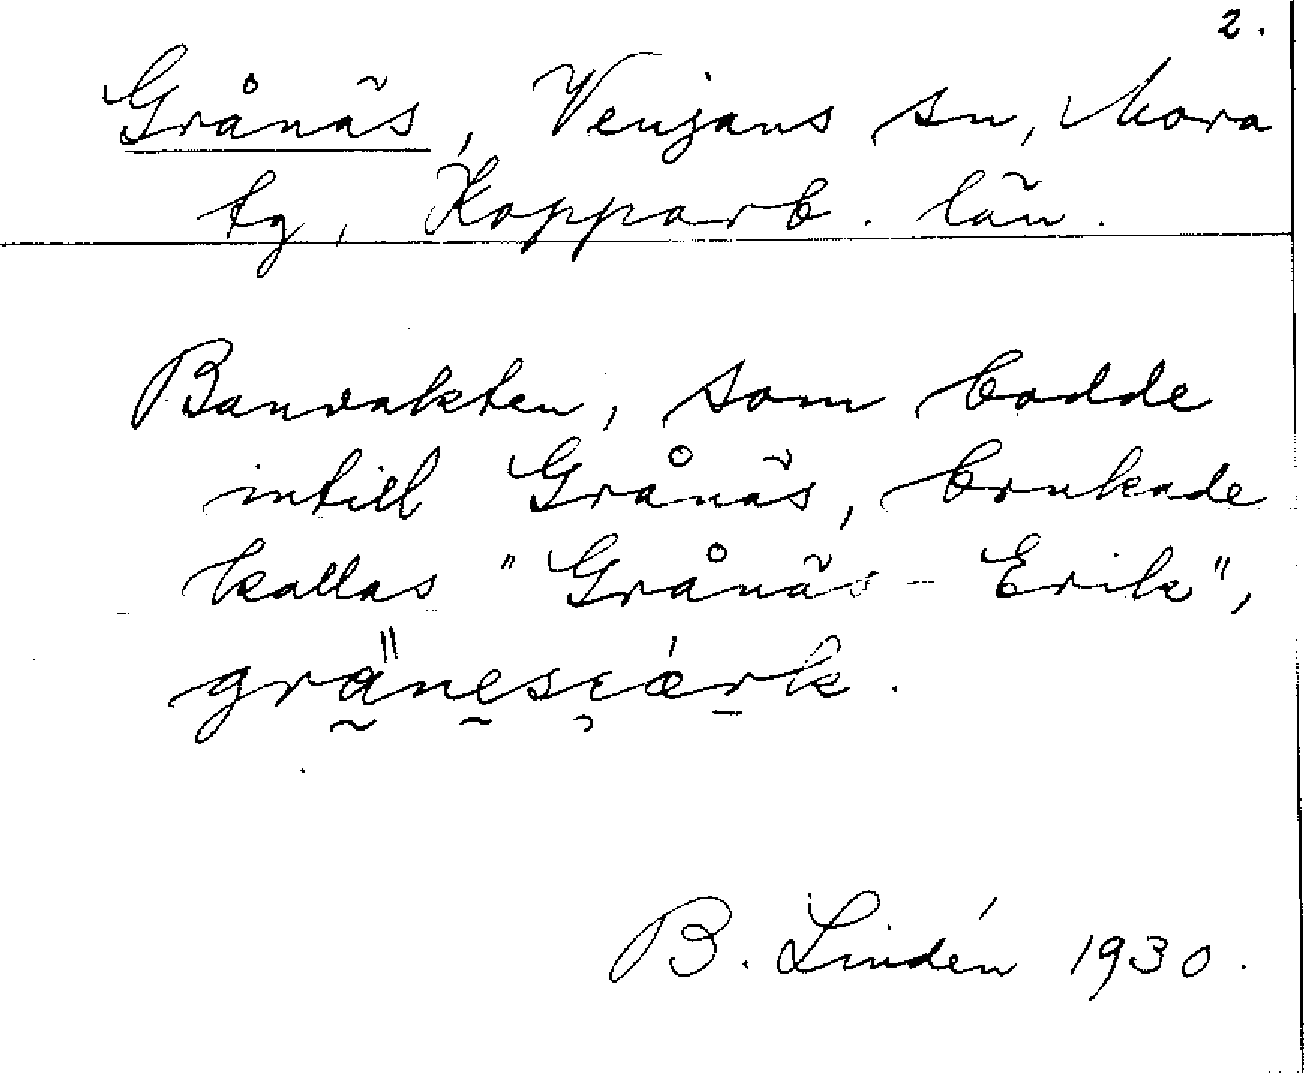 2.
Grånäs, Venjans sn, Mora
tg, Kopparb. län.
Banvakten, som bodde
intill Grånäs, brukade
kallas "Grånäs-Erik",
B. Lindén 1930.